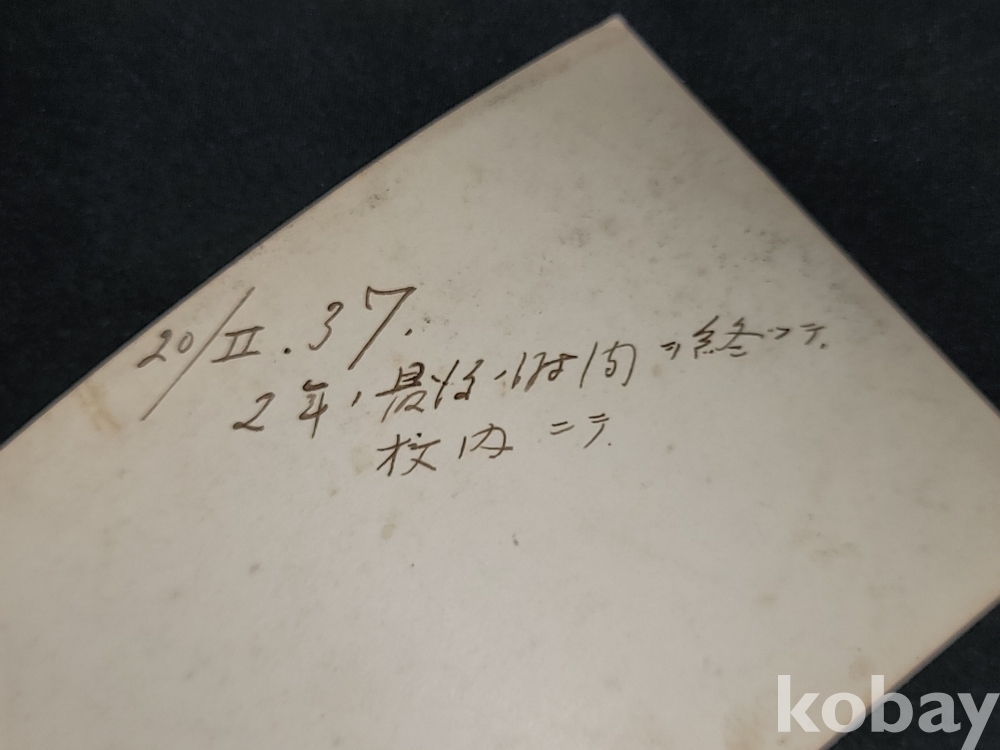 20/II.37.
2年ノ最後ノ時間ヲ終ツテ.
校内ニテ.
kobay